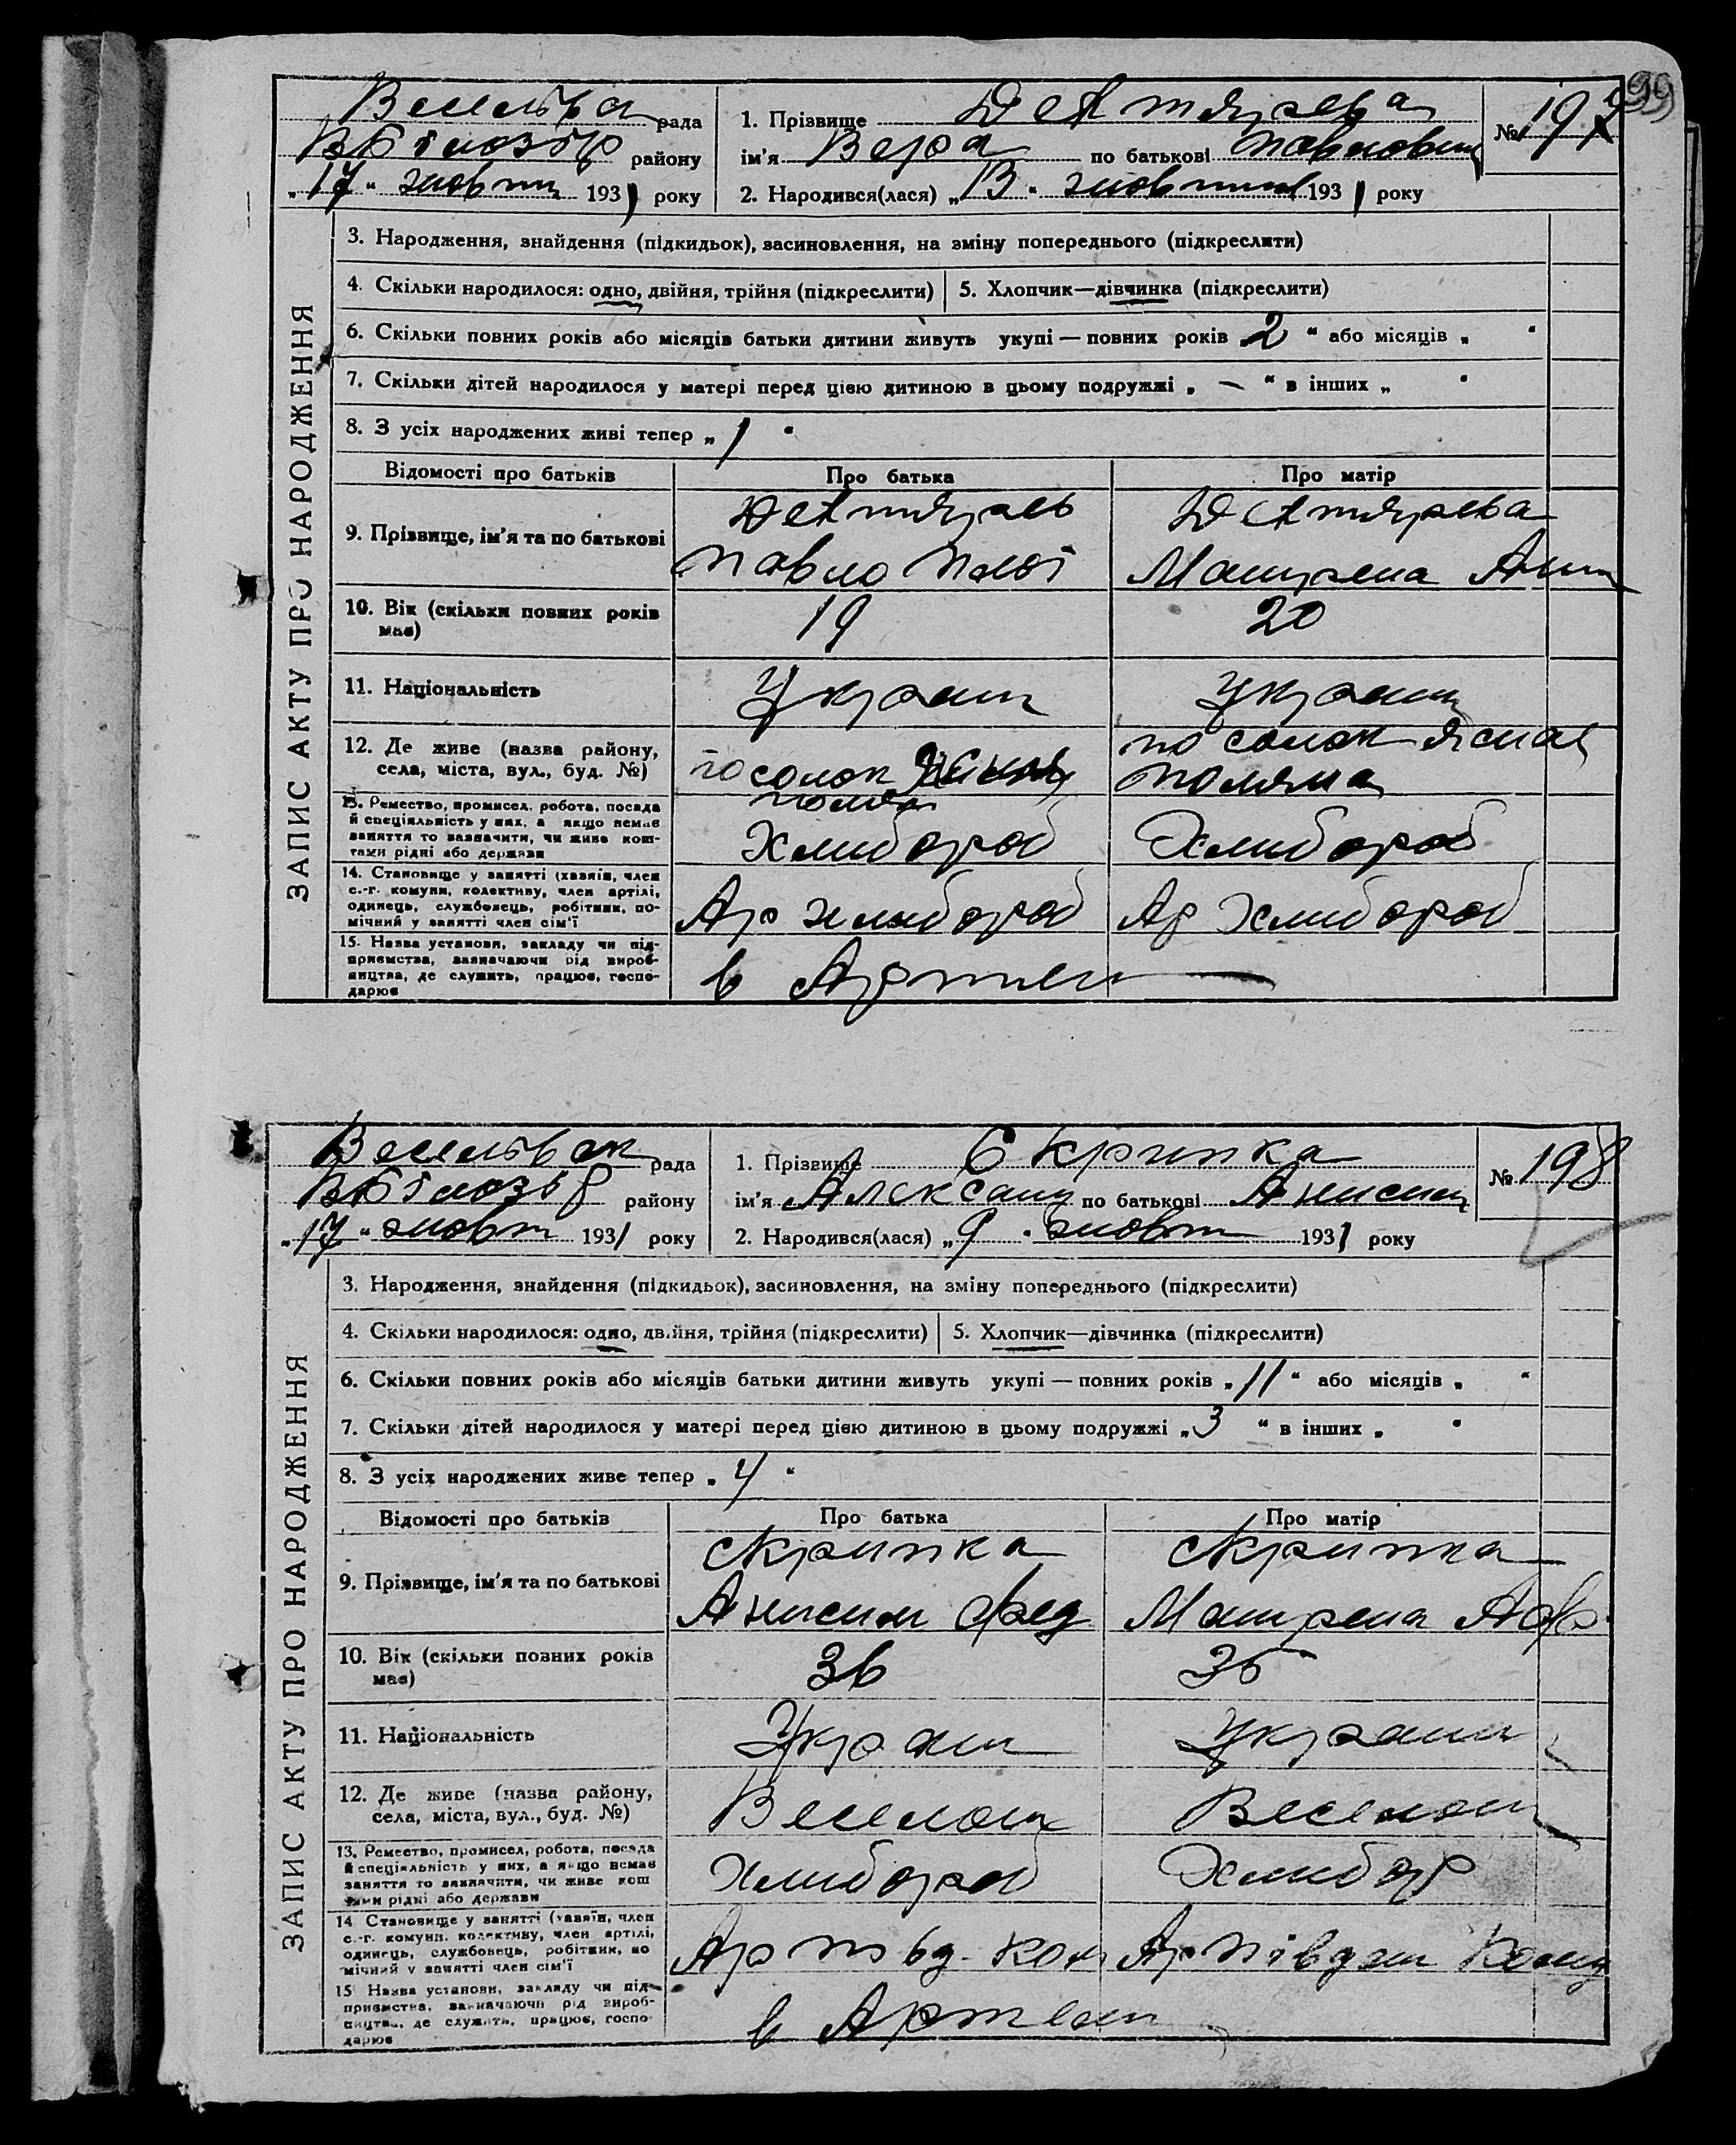 99
Веселівська рада
1. Прізвище Дехтярева
№ 197
району
ім'я Вера по батькові Павловна
„17“ жовтня 1931 року
2. Народився(лася) „13“ жовтня 1931 року
ЗАПИС АКТУ ПРО НАРОДЖЕННЯ
3. Народження, знайдення (підкидьок), засиновлення, на зміну попереднього (підкреслити)
4. Скільки народилося: одно, двійня, трійня (підкреслити)
5. Хлопчик—дівчинка (підкреслити)
6. Скільки повних років або місяців батьки дитини живуть укупі — повних років „2“ або місяців „ “
7. Скільки дітей народилося у матері перед цією дитиною в цьому подружжі „—“ в інших „ “
8. З усіх народжених живі тепер „1“
Відомості про батьків
Про батька
Про матір
9. Прізвище, ім'я та по батькові
Павло
Мотрена
10. Вік (скільки повних років має)
19
20
11. Національність
Украин
Украин
12. Де живе (назва району, села, міста, вул., буд. №)
посолок Ясная поляна
посолок Ясная
поляна
13. Ремество, промисел, робота, посада
й спеціяльність у них, а якщо немає
заняття то зазначити, чи живе кош-
тами рідні або держави
Хлибороб
Хлибороб
14. Становище у занятті (хазяїн, член
с.-г. комуни, колективу, член артілі,
одинець, службовець, робітник, по-
мічний у занятті член сім'ї
Ар хлибороб
Ар Хлибороб
15. Назва установи, закладу чи під-
приємства, зазначаючи рід вироб-
ництва, де служить, працює, госпо-
дарює
в Артели —
рада
1. Прізвище Скрипка
№ 198
району
ім'я Александ по батькові Анисим
„17“ жовт 1931 року
2. Народився(лася) „9“ жовт 1931 року
ЗАПИС АКТУ ПРО НАРОДЖЕННЯ
3. Народження, знайдення (підкидьок), засиновлення, на зміну попереднього (підкреслити)
4. Скільки народилося: одно, двійня, трійня (підкреслити)
5. Хлопчик—дівчинка (підкреслити)
6. Скільки повних років або місяців батьки дитини живуть укупі — повних років „11“ або місяців „ “
7. Скільки дітей народилося у матері перед цією дитиною в цьому подружжі „3“ в інших „ “
8. З усіх народжених живе тепер „4“
Відомості про батьків
Про батька
Про матір
9. Прізвище, ім'я та по батькові
Скрипка
Скрипка
Анисим Фед
Мотрена Аф
10. Вік (скільки повних років має)
36
35
11. Національність
Украин
Украин
12. Де живе (назва району, села, міста, вул., буд. №)
Веселом
Веселом
13. Ремество, промисел, робота, посада
й спеціяльність у них, а якщо немає
заняття то зазначити, чи живе кош
тами рідні або держави
Хлибороб
Хлибор
14 Становище у занятті (хазяїн, член
с.-г. комуни, колективу, член артілі,
одинець, службовець, робітник, по
мічний у занятті член сім'ї
Ар
Ар
15 Назва установи, закладу чи під-
приємства, зазначаючи рід вироб-
ництва, де служить, працює, госпо-
дарює
в Артели